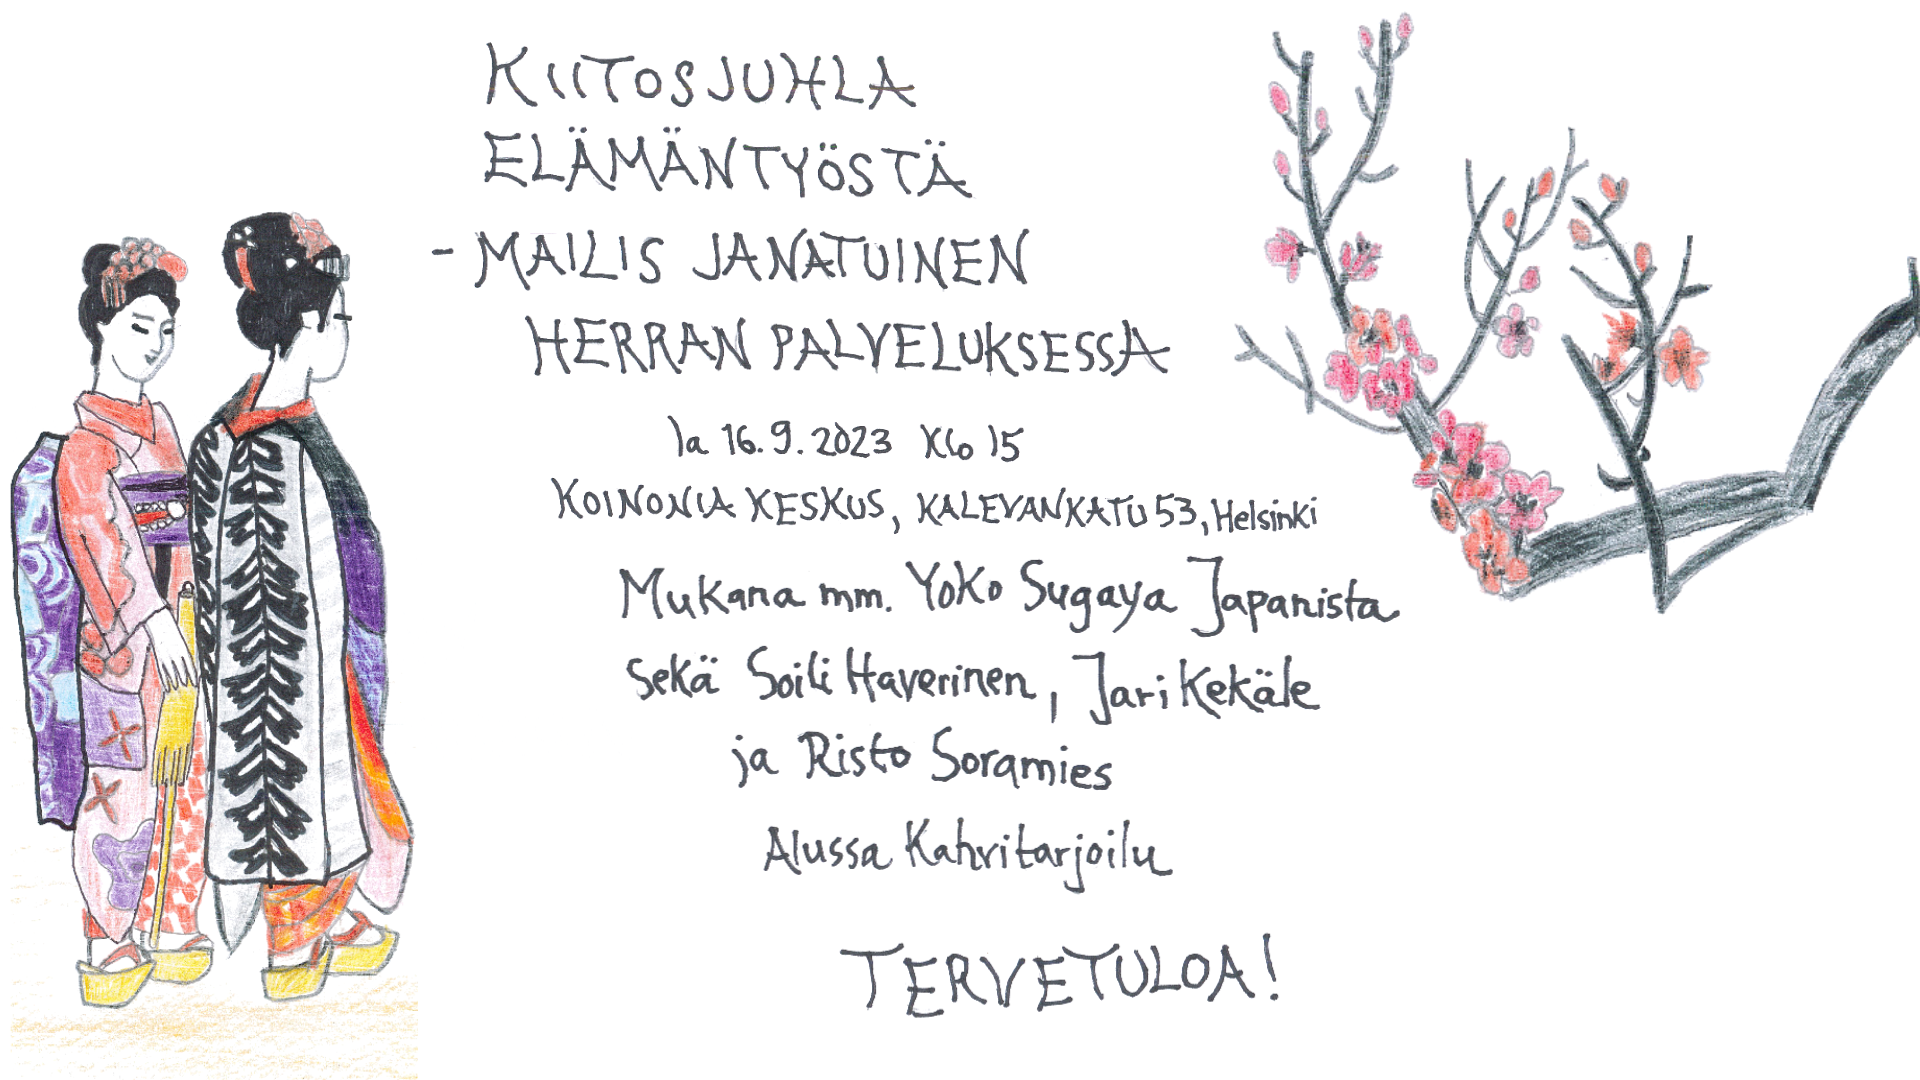 KIITOSJUHLA
ELÄMÄNTYÖSTÄ
- MAILIS JANATUINEN
HERRAN PALVELUKSESSA
la 16.9.2023 klo 15
KOINONIA KESKUS, KALEVANKATU 53, Helsinki
Mukana mm. Yoko Sugaya Japanista
sekä Soili Haverinen, Jari Kekäle
ja Risto Soramies
Alussa Kahvitarjoilu
TERVETULOA!